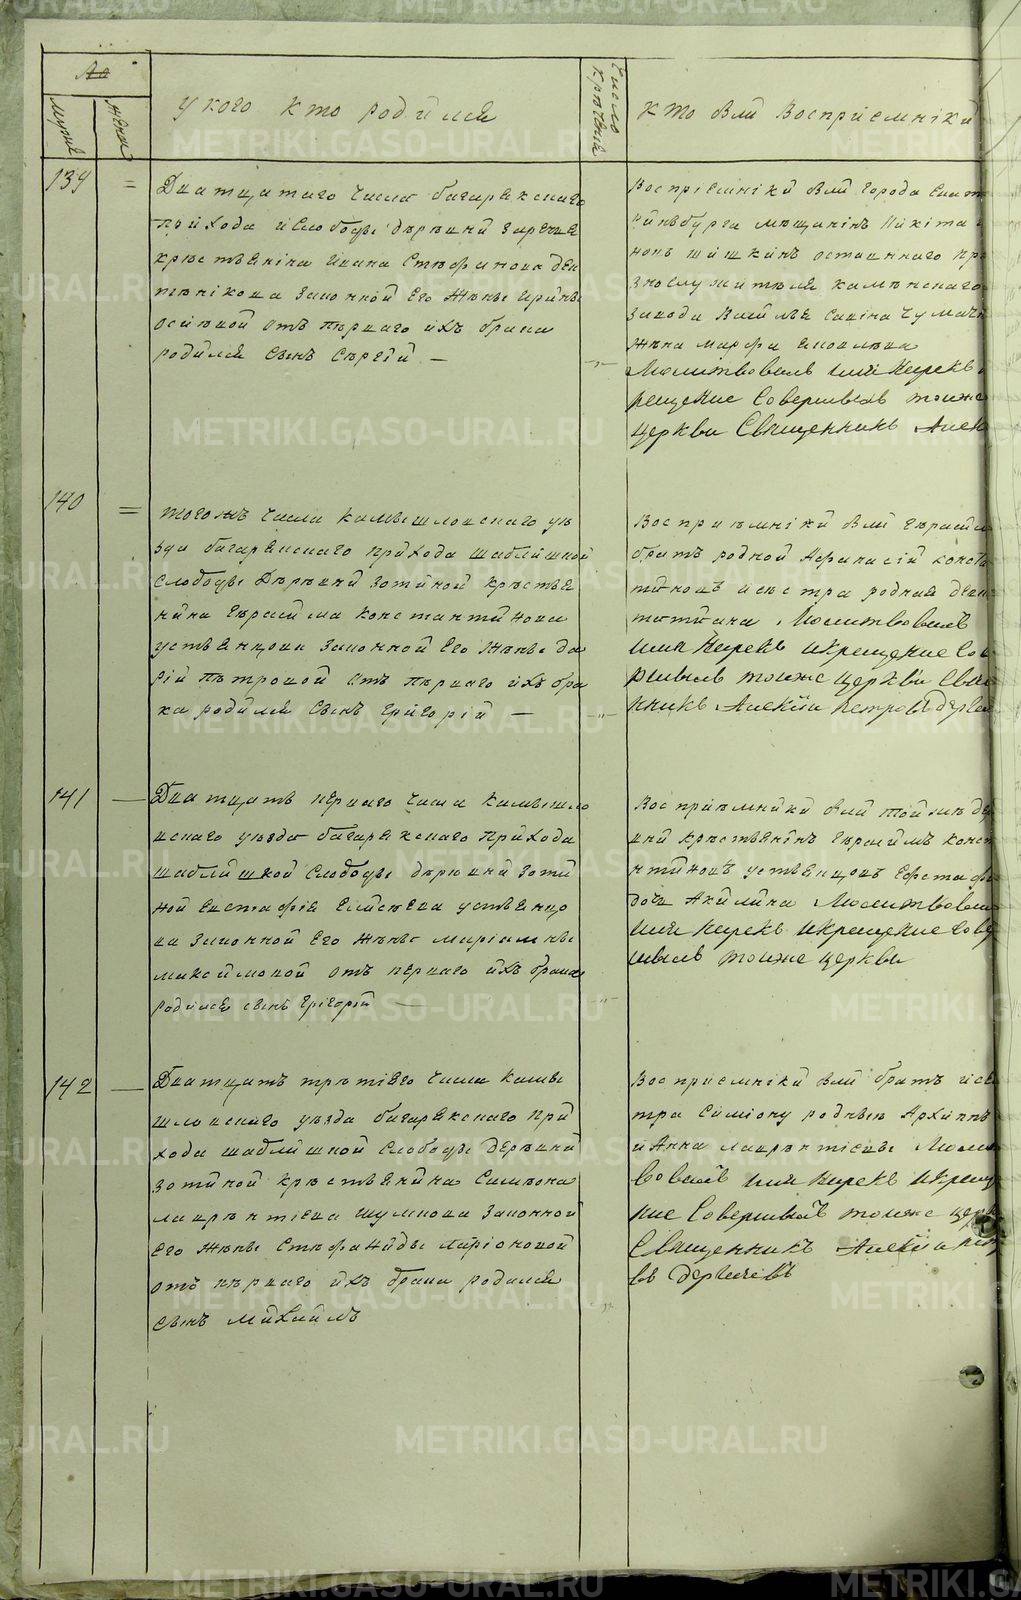 №
мужи
жени
у кого кто родился
Число Крещения
Кто были восприемники
139 =
Дватцатаго числа багарякскаго
прихода и слободы деревни заречн
крестьянина Ивана Стефанова
законной его жены Ирины
осиевой отъ перваго ихъ брака
родился сынъ Сергий —
Восприемники были города Екат
ринбурга мещанинъ Никита
новъ шишкинъ оставнаго
служителя каменскаго
завода Василья Савина
жена марфа
Молитвовалъ имя нарекъ и
рещение Совершалъ тоиже
церкви Священникъ Алек
140 =
тогожъ числа камышловскаго уѣ
зда багарякскаго прихода шаблишной
слободы деревни зотиной крестья
нина герасима константинова
устьянцова законной его жены да
рии петровой отъ перваго ихъ бра
ка родился сынъ григорий —
Восприемники были герасима
братъ родной Афанасий конста
тиновъ и сестра родная девк
татиана Молитвовалъ
имя нарекъ и крещение Сов
ршилъ тоиже церкви Свящ
нникъ Алексий петровъ дерябин
141 —
Дватцать перваго числа камышло
вскаго уезда багарякскаго прихода
шаблишной слободы деревни зоти
ной евстафия елисеева устьянцо
ва законной его жены мариамны
максимовой отъ перваго ихъ брака
родился сынъ григорий —
Восприемники были той же дер
вни крестьянинъ герасимъ конст
нтиновъ устьянцовъ евстафия
дочь Акилина Молитвовалъ
имя нарекъ и крещение Сове
шилъ тоиже церкви
142 —
Дватцать третиего числа камы
шловскаго уезда багарякскаго при
хода шаблишной слободы деревни
зотиной крестьянина Симеона
лаврентиева шумкова законной
его жены Стефаниды ларионовой
отъ перваго ихъ брака родился
сынъ михаилъ
Восприемники были братъ и сес
тра симиону родные Архипъ
и Анна лаврентиевы Моли
вовалъ имя нарекъ и креще
ние Совершилъ тоиже церк
Священникъ Алексий пет
въ
METRIKI.GASO-URAL.RU